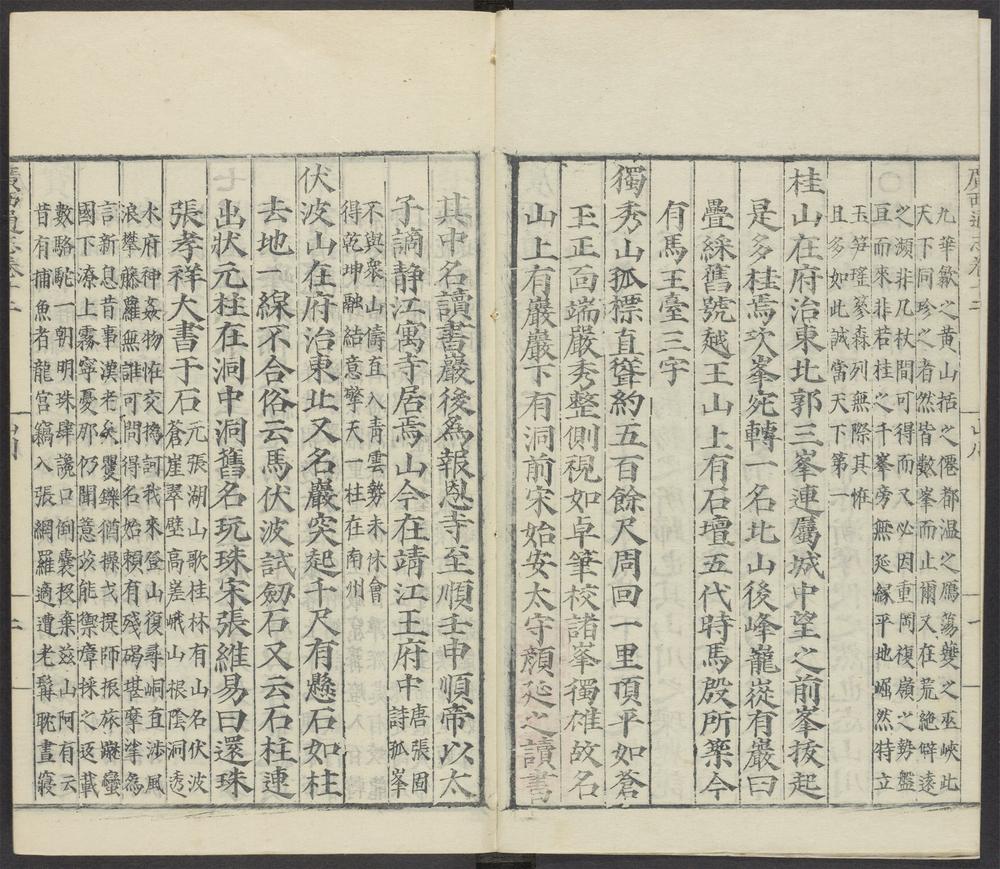 廣西通志卷十二
山川
一
九華歙之黃山括之僊都溫之鴈蕩夔之巫峽此
天下同珍之者然皆數峯而止爾又在荒絶僻逺
之瀕非几杖間可得而又必因重岡複嶺之勢盤
亘而來非若桂之千峯旁無延緣平地崛然特立
玉笋瑤篸森列無際其恠
且多如此誠當天下第一
桂山在府治東北郭三峯連屬城中望之前峯拔起
是多桂焉次峯宛轉一名北山後峰巃嵸有巖曰
疊綵舊號越王山上有石壇五代時馬殷所築今
有馬王臺三字
獨秀山孤標直聳約五百餘尺周回一里頂平如蒼
玉正靣端嚴秀整側視如卓筆校諸峯獨雄故名
山上有巖巖下有洞前宋始安太守顏延之讀書
其中名讀書巖後為報恩寺至順壬申順帝以太
子謫静江寓寺居焉山今在靖江王府中
唐張固
詩孤峯
不與衆山儔直入青雲勢未休會
得乾坤融結意擎天一柱在南州
伏波山在府治東北又名巖突起千尺有懸石如柱
去地一線不合俗云馬伏波試劒石又云石柱連
出狀元柱在洞中洞舊名玩珠宋張維易曰還珠
張孝祥大書于石
元張湖山歌桂林有山名伏波
蒼崖翠壁高嵳峨山根隂洞透
水府神姦物恠交撝訶我來登山復尋峒直渉風
浪攀藤蘿無誰可問得名始賴有殘碣堪摩挲為
言新息昔事漢老矣矍鑠猶操戈提師振旅蹴蠻
國下潦上霧寧憂那仍聞薏苡能禦瘴採之返載
數駱駝一朝明珠肆讒口倒囊投棄兹山阿有云
昔有捕魚者龍宫竊入張網羅適遭老龍耽晝寢
廣西通志卷十二
山川
二